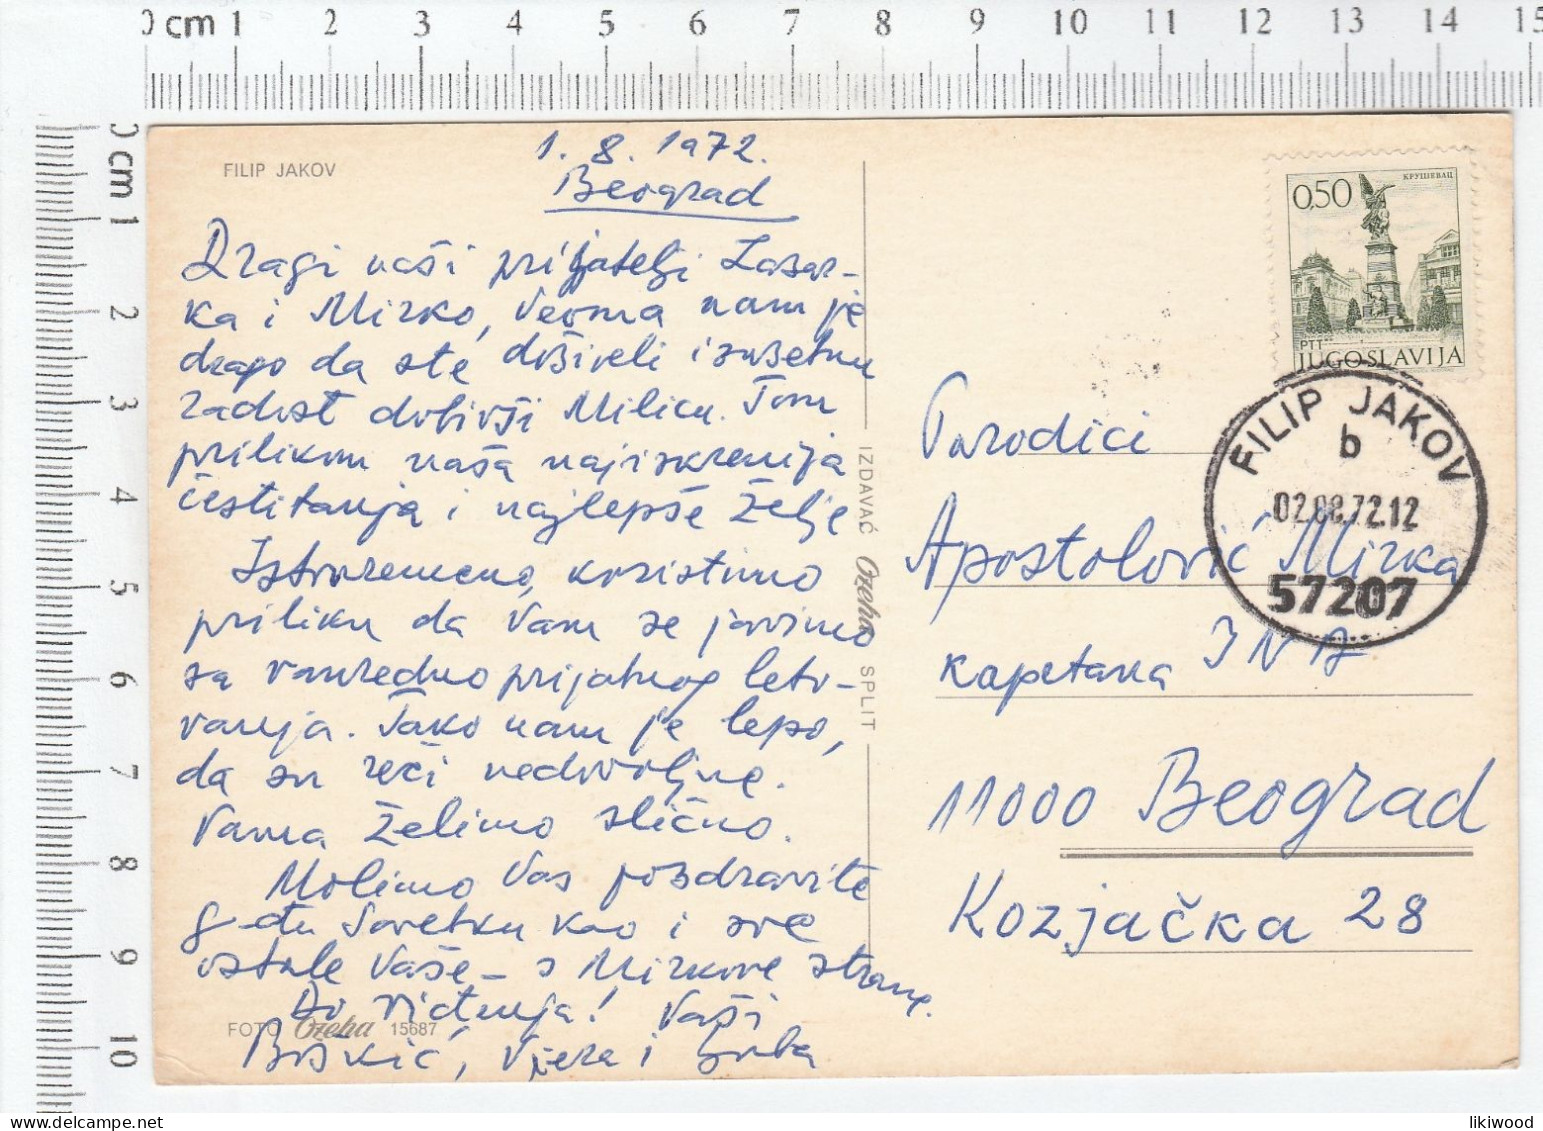 0 cm 1 2 3 4 5 6 7 8 9 10 11 12 13 14 15
0 cm 1 2 3 4 5 6 7 8 9 10
FILIP JAKOV
1. 8. 1972.
Beograd
Dragi naši prijatelji Lazar-
ka i Mirko, Veoma nam je
drago da ste doživeli izuzetnu
radost dobivši Milicu. Tom
prilikom naša najiskrenija
čestitanja i najlepše želje
Istovremeno, koristimo
priliku da Vam se javimo
sa vanredno prijatnog leto-
vanja. Tako nam je lepo,
da su reči nedovoljne.
Vama želimo slično.
Molimo Vas pozdravite
g-đu Savetku kao i sve
ostale Vaše - s Mirkove strane.
Do viđenja! Vaši
Boškić, Vjera i
FOTO Ozeha 15687
IZDAVAČ Ozeha SPLIT
0,50
КРУШЕВАЦ
PTT
JUGOSLAVIJA
FILIP JAKOV
b
02.08.72.12
57207
Porodici
Apostolović Mirka
kapetana JNA
11000 Beograd
Kozjačka 28
likiwood